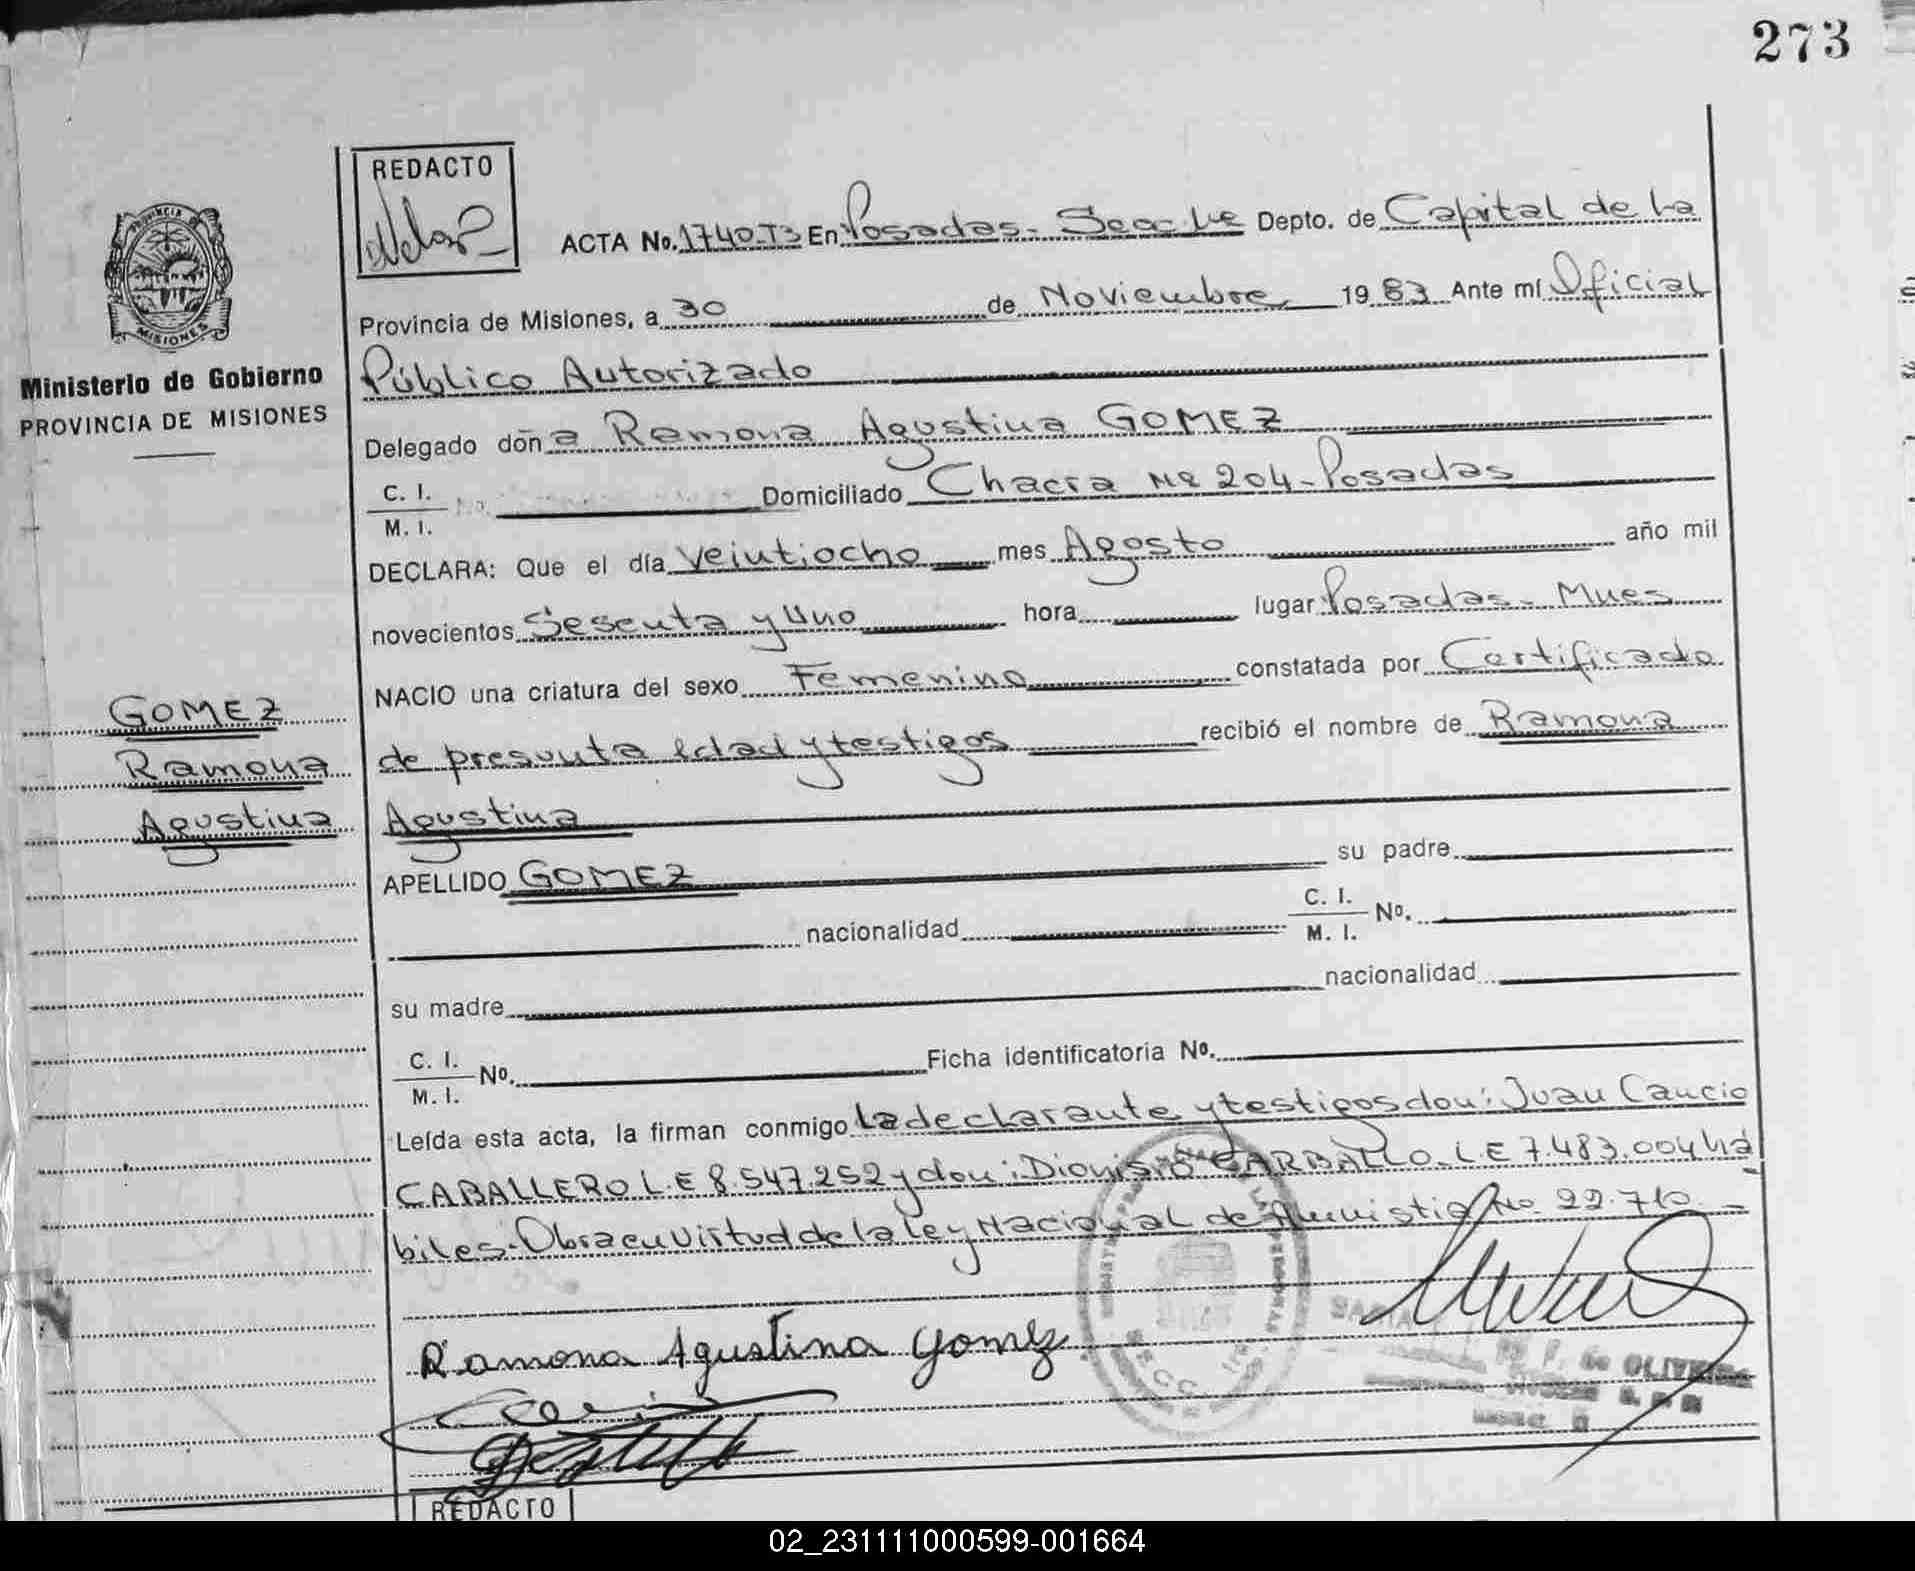 273
REDACTO
PROVINCIA DE
MISIONES
Ministerio de Gobierno
PROVINCIA DE MISIONES
ACTA No. 1740-T3 En Posadas- Secc 1re Depto. de Capital de La
Provincia de Misiones, a 30 de Noviembre 1983 Ante mí Oficial
Público Autorizado
Delegado doña Ramona Agustina GOMEZ
C. I.
M. I. No. Domiciliado Chacra Nº 204-Posadas
DECLARA: Que el día veintiocho mes Agosto año mil
novecientos Sesenta y Uno hora lugar Posadas- Mnes
NACIO una criatura del sexo Femenino constatada por Certificado
de presunta edad y testigos recibió el nombre de Ramona
Agustina
GOMEZ
Ramona
Agustina
APELLIDO GOMEZ su padre
nacionalidad C. I. No.
M. I.
su madre nacionalidad
C. I. No. Ficha identificatoria No.
M. I.
Leída esta acta, la firman conmigo la declarante y testigos don: Juan Cancio
CABALLERO L.E 8.547.252 y don: Dionisio CARBALLO L.E 7.483.004 há
biles- Obra en virtud de la Ley Nacional de Amnistia No 22.710
Ramona Agustina Gomez
F. de OLIVEIRA
REDACTO
02_231111000599-001664